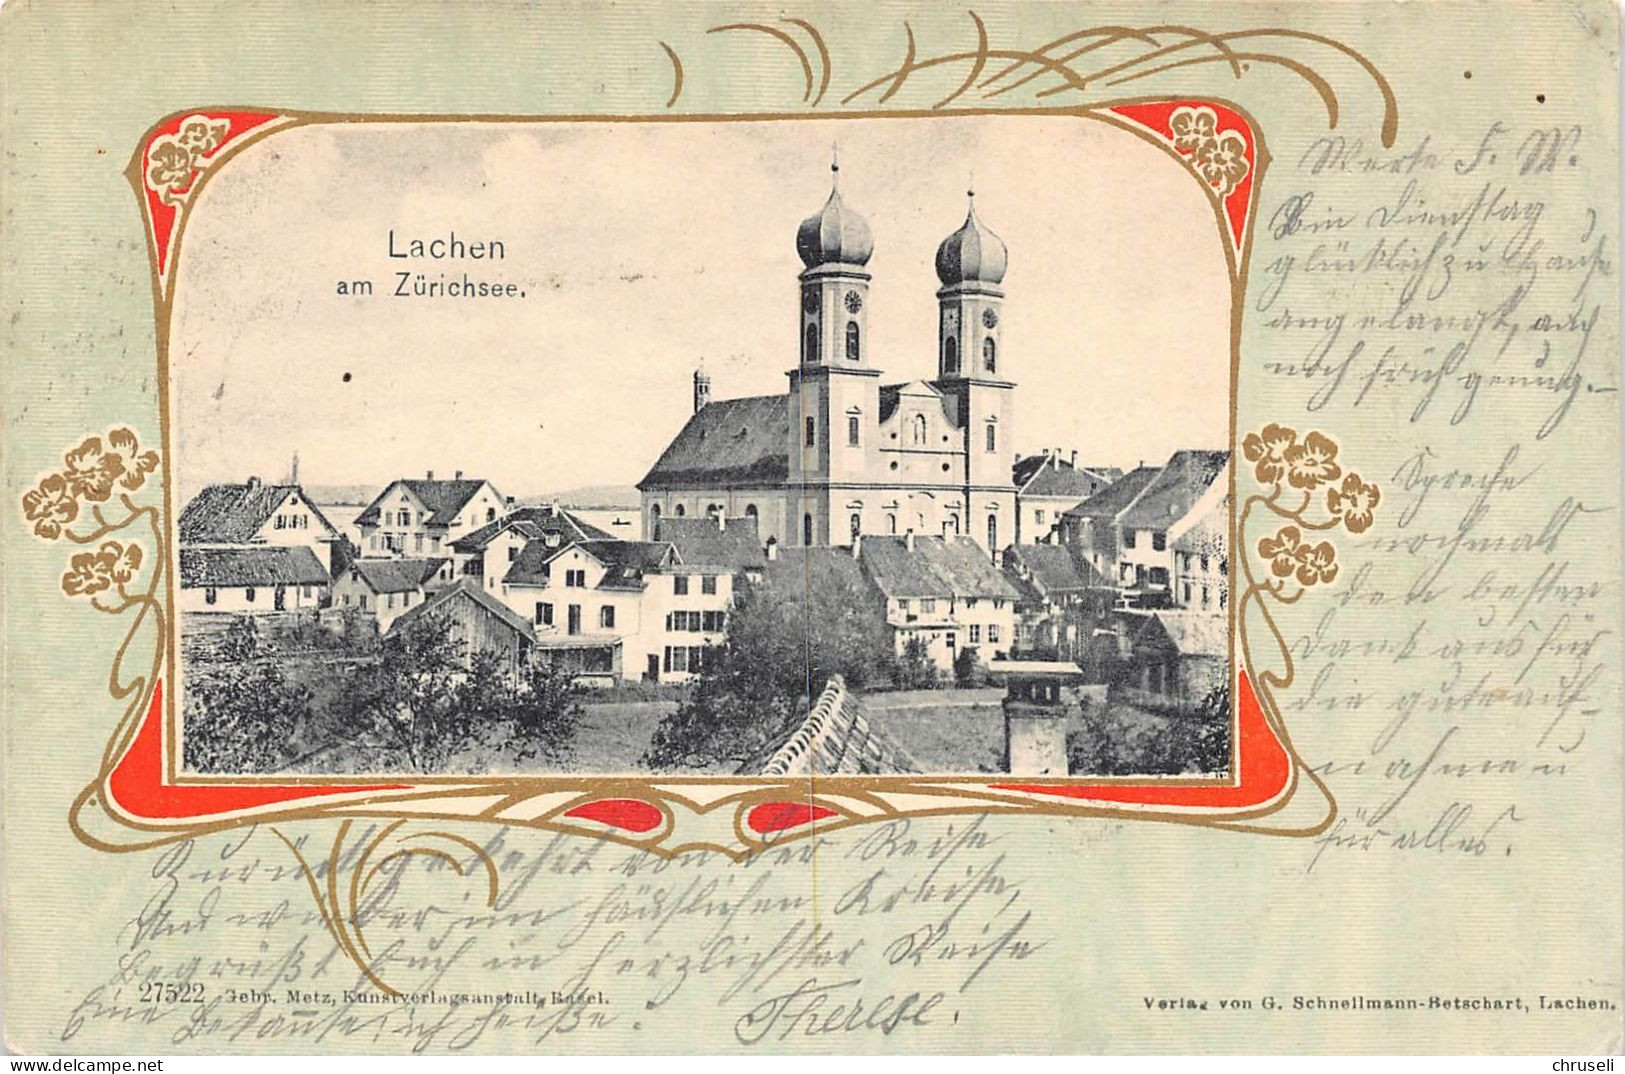 Lachen
am Zürichsee.
Werte F. W.
Bin Dienstag
glücklich zu Hause
angelangt, auch
noch früh genug.–
Spreche
nochmals
den besten
Dank aus für
die gute Auf-
nahme u
für alles.
Zurückgekehrt von der Reise
Und wieder im häuslichen Kreise,
Begrüßt Euch in herzlichster Weise
Eine Bekannte, ich heiße: Therese.
27522 Gebr. Metz, Kunstverlagsanstalt, Basel.
Verlag von G. Schnellmann-Betschart, Lachen.
chruseli